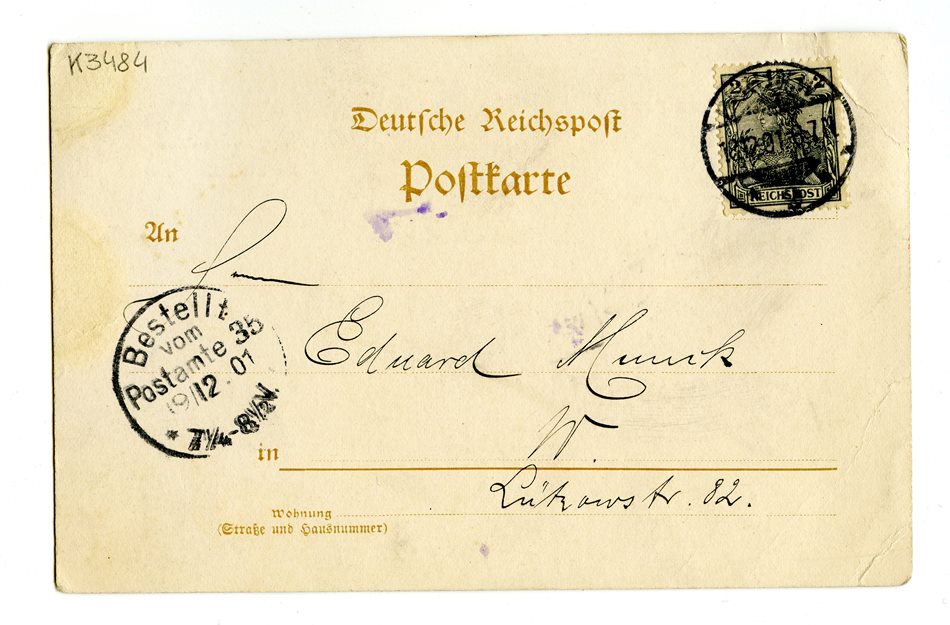 K3484
Deutsche Reichspost
Postkarte
REICHSPOST
An
Bestellt
vom
Postamte 35
19/12.01
* 7¼-8½N.
Eduard Munck
in
W.
Lützowstr. 82.
Wohnung
(Straße und Hausnummer)